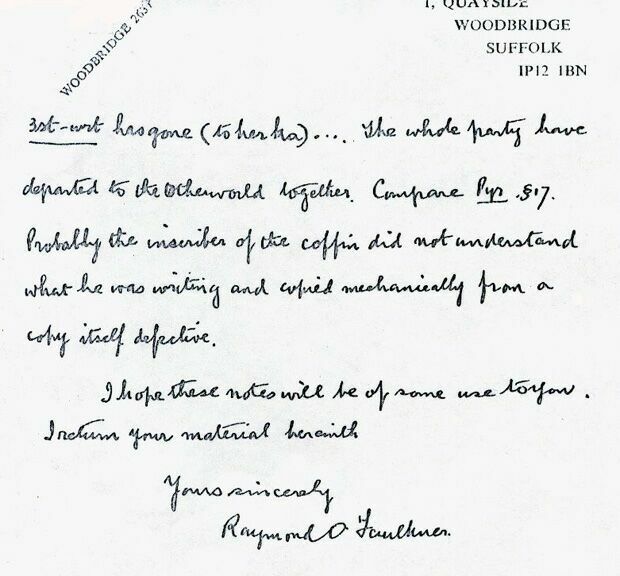 WOODBRIDGE 2637
1, QUAYSIDE
WOODBRIDGE
SUFFOLK
IP12 1BN
3st-wrt has gone (to her ka).... The whole party have
departed to the Otherworld together. Compare Pyr. §17.
Probably the inscriber of the coffin did not understand
what he was writing and copied mechanically from a
copy itself defective.
I hope these notes will be of some use to you.
I return your material herewith
Yours sincerely
Raymond O Faulkner.